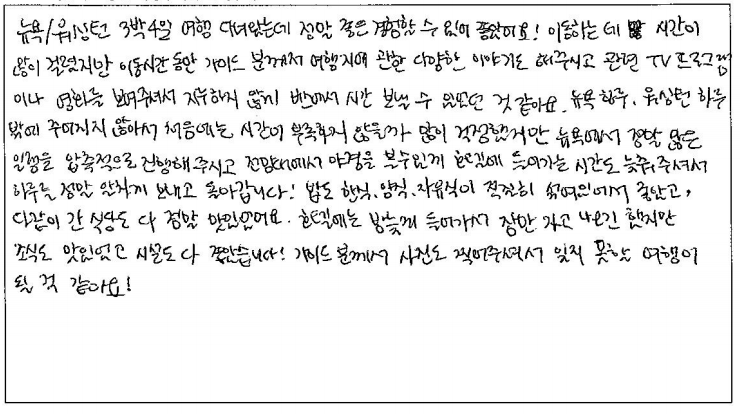 뉴욕/워싱턴 3박4일 여행 다녀왔는데 정말 좋은 경험할 수 있어 좋았어요! 이동하는데 시간이
많이 걸렸지만 이동시간 동안 가이드 분께서 여행지에 관한 다양한 이야기도 해주시고 관련 TV 프로그램
이나 영화를 보여주셔서 지루하지 않게 버스에서 시간 보낼 수 있었던 것 같아요. 뉴욕 하루, 워싱턴 하루
밖에 주어지지 않아서 처음에는 시간이 부족하지 않을까 많이 걱정했지만 뉴욕에서 정말 많은
일정을 압축적으로 진행해주시고 전망대에서 야경을 볼수있게 호텔에 들어가는 시간도 늦춰주셔서
하루를 정말 알차게 보내고 돌아갑니다! 밥도 한식, 양식, 자유식이 적절히 섞여있어서 좋았고,
다같이 간 식당도 다 정말 맛있었어요. 호텔에는 밤늦게 들어가서 잠만 자고 나오긴 했지만
조식도 맛있었고 시설도 다 좋았습니다! 가이드 분께서 사진도 찍어주셔서 잊지 못할 여행이
될 것 같아요!